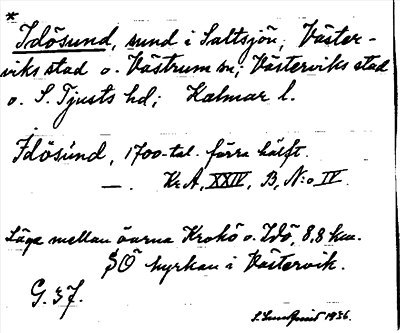 *
Idösund, sund i Saltsjön, Väster-
viks stad o. Västrum sn; Västerviks stad
o. S. Tjusts hd; Kalmar l.
Idösúnd, 1700-tal. förra hälft.
—. Kr. A, XXIV, B, N:o IV.
Läge mellan öarna Krokö o. Idö, 8,8 km.
SÖ kyrkan i Västervik.
G. 37.
S. Sundquist 1936.